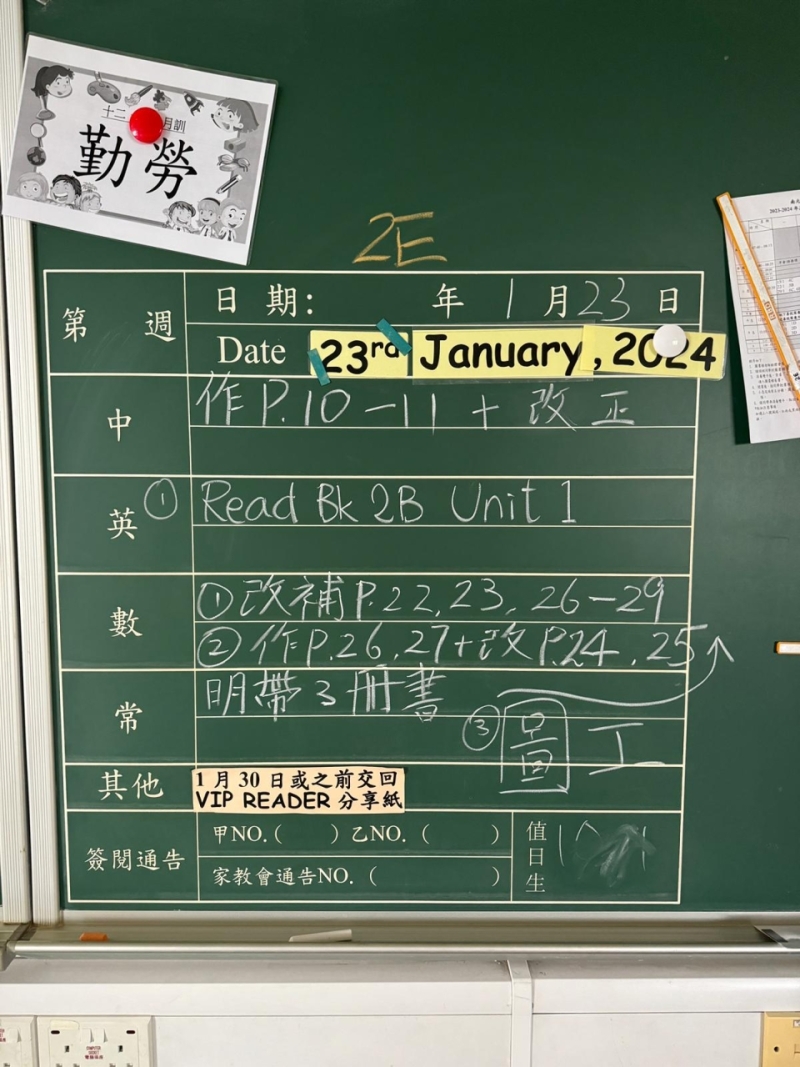 十二
月訓
勤勞
2E
第 週
日期: 年 1 月 23 日
Date 23rd January, 2024
中
作P.10-11+改正
英
① Read Bk 2B Unit 1
數
①改補P.22,23,26-29
②作P.26,27+改P.24,25
常
明帶3冊書
③圖工
其他
1月30日或之前交回
VIP READER 分享紙
簽閱通告
甲NO.( ) 乙NO.( )
家教會通告NO.( )
值日生